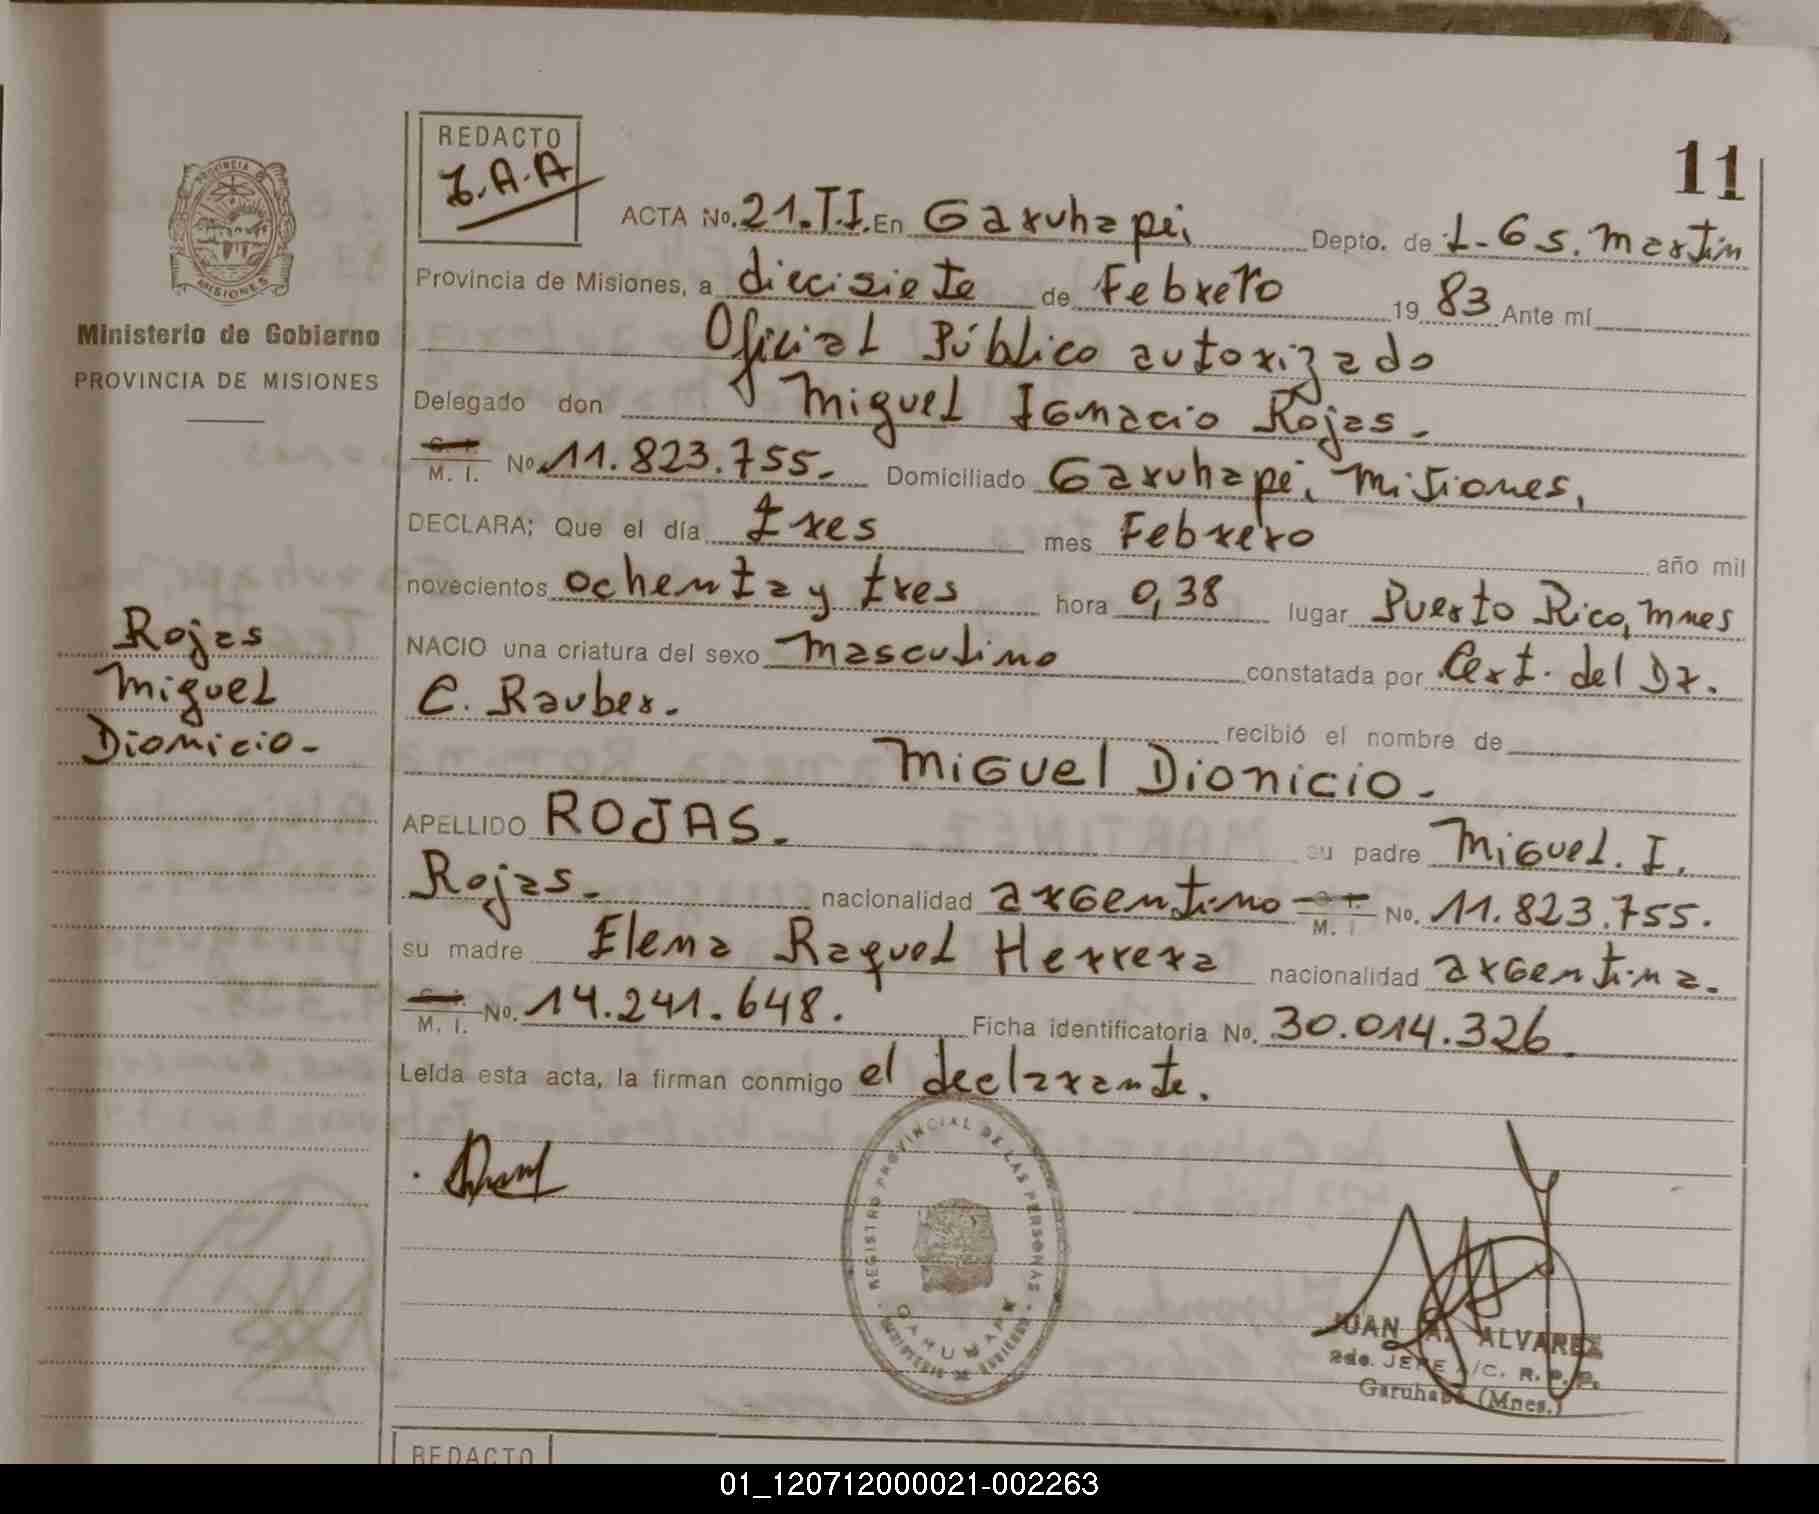 11
REDACTO
J.A.A
ACTA No. 21.T.I. En Garuhapé, Depto. de L-G S. Martín
Provincia de Misiones, a diecisiete de Febrero 1983 Ante mí
Oficial Público autorizado
Delegado don Miguel Ignacio Rojas.
C. I. M. I. No. 11.823.755. Domiciliado Garuhapé, Misiones,
DECLARA; Que el día tres mes Febrero año mil
novecientos ochenta y tres hora 0,38 lugar Puerto Rico, Mnes
NACIO una criatura del sexo masculino constatada por Cert. del Dr.
C. Rauber. recibió el nombre de
MIGUEL DIONICIO.
APELLIDO ROJAS. su padre Miguel. I.
Rojas. nacionalidad argentino C. I. M. I. No. 11.823.755.
su madre Elena Raquel Herrera nacionalidad argentina.
C. I. M. I. No. 14.241.648. Ficha identificatoria No. 30.014.326.
Leída esta acta, la firman conmigo el declarante.
PROVINCIA DE MISIONES
Ministerio de Gobierno
PROVINCIA DE MISIONES
Rojas
Miguel
Dionicio-
REGISTRO PROVINCIAL DE LAS PERSONAS
MINISTERIO DE GOBIERNO
JUAN A. ALVAREZ
2do. JEFE A/C. R. P. P.
Garuhapé (Mnes.)
REDACTO
01_120712000021-002263